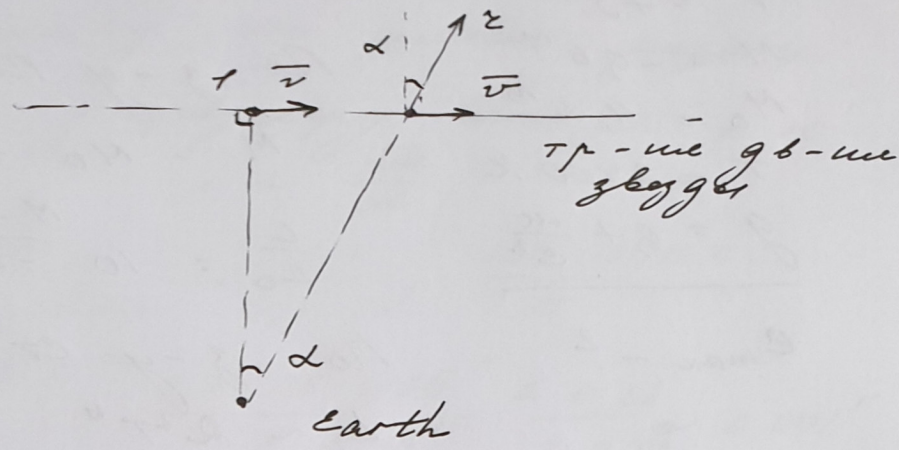 α
r
1 v̅
v̅
тр-ие дв-ие
звезды
α
Earth